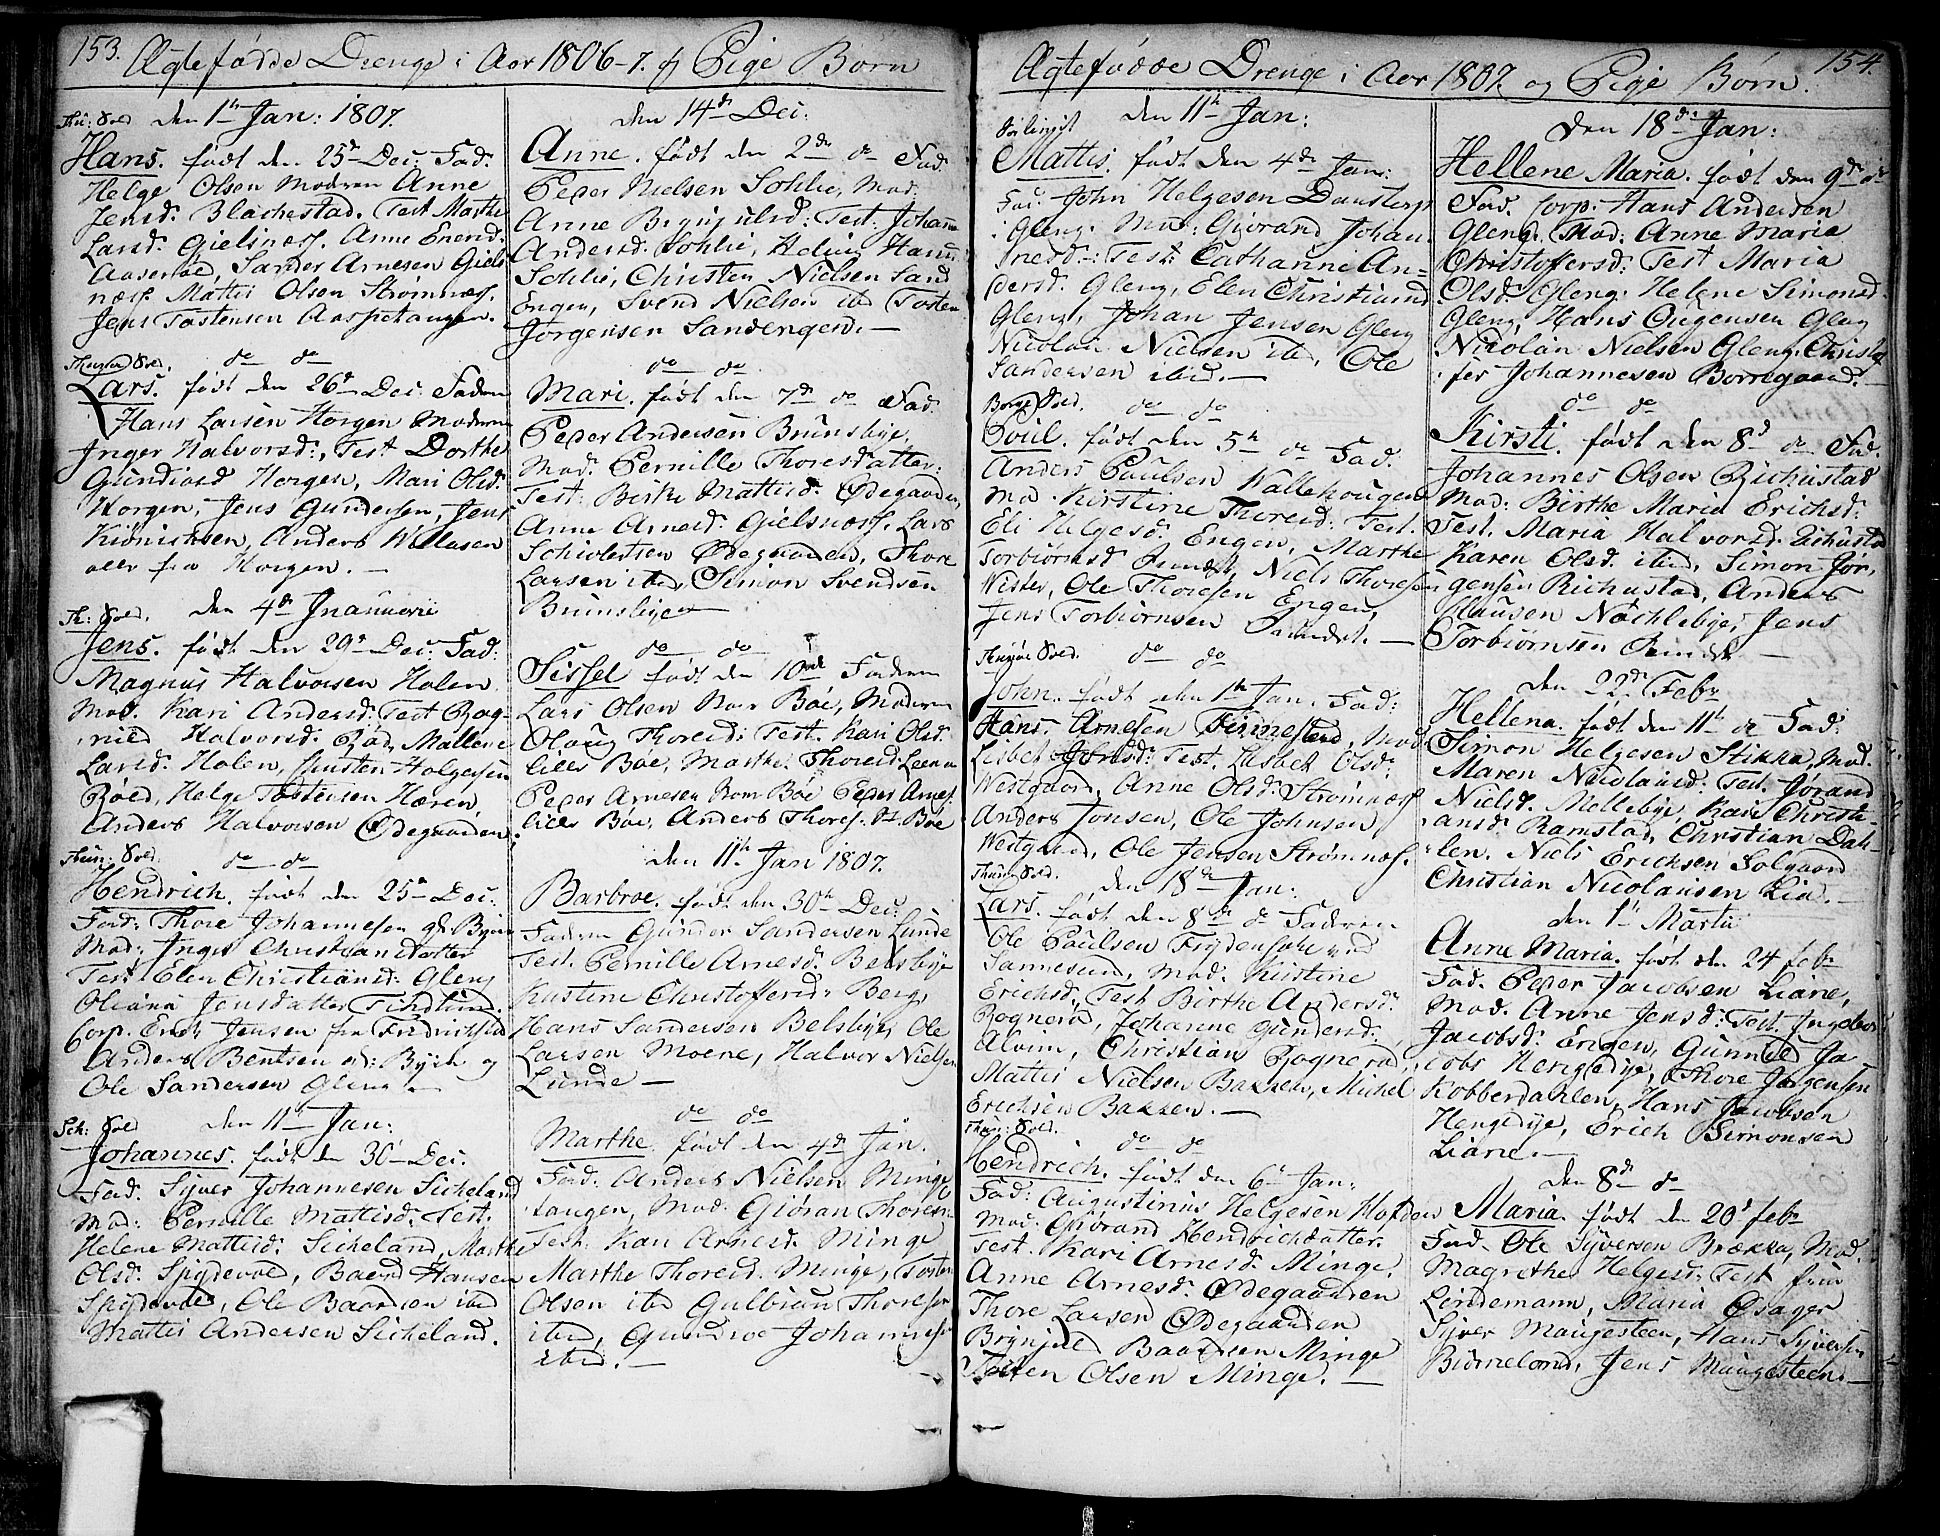 153. Ægtefødde Drenge i Aar 1806-7. og Pige Børn
Thu: Sved den 1te Jan: 1807.
Hans. født den 25de Dec: Fad:
Helge Olsen Modren Anne
Jensd: Blachestad. Test Marthe
Larsd: Gielsnæss. Anne Enersd:
Aaserøe, Sander Arnesen Giels
næss. Mattis Olsen Strømnæss.
Jens Tostensen Aaspetangen.
Thunøe Sved. do do
Lars. født den 26de Dec: Fadren
Hans Larsen Horgen Modren
Inger Halvorsd:, Test Dorthe
Gundersd Horgen, Mari Olsd:
Horgen, Jens Gundersen, Jens
Kiønichsen, Anders Willasen
alle fra Horgen. —
Th: Sved. den 4de Jnanuarii
Jens. født den 29de Dec: Fad:
Magnus Halvorsen Holen
Mod. Kari Andersd: Test Rag-
nild Halvorsd: Röd, Mallene
Larsd: Holen, Christen Holgersen
Röed, Helge Tostensen Hæren
Anders Halvorsen Ødegaarden
Thun: Sved. do do
Hendrich. født den 25de Dec:
Fad: Thore Johannesen gl: Byen
Mod: Inger Christiansdatter
Test Elen Christiansd: Gleng
Oliana Jensdatter Tindlund.
Corp. Erich Jensen fra Fredrichstad
Anders Bentsen gl: Byen og
Ole Sandersen Gleng —
Sch: Sved den 11te Jan:
Johannes. født den 30te Dec:
Fad. Syver Johannesen Sicheland
Mod: Pernille Mattisd: Test:
Helene Mattisd: Sicheland, Marthe
Olsd: Spydevold, Baard Hansen
Spydevold, Ole Baardsen ibid
Mattis Andersen Sicheland.
den 14de Dec:
Anne. født den 2de do Fad.
Peder Nielsen Sohlie, Mod:
Anne Brynjulsd: Test: Johanne
Andersd: Sohlie, Helvig Hansd
Sohlie, Christen Nielsen Sand
Engen, Svend Nielsen ibd Tosten
Jørgensen Sandengen. —
do do
Mari. født den 7de do Fad.
Peder Andersen Brunsbye,
Mod: Pernille Thoresdatter:
Test: Birthe Mattisd: Ødegaarden,
Anne Arnesd: Gielsnæss. Lars
Schiolestsen Ødegaarden, Thore
Larsen ibd, Simon Svendsen
Brunsbyen
do do
Sissel født den 10de Fadren
Lars Olsen Bøe, Modren
Olaug Thoresd: Test. Kari Olsd:
lille Bøe, Marthe Thoresd:
Peder Arnesen Bøe Peder Arnes:
lille Bøe, Anders Thores. Bøe
den 11te Jan 1807.
Barbroe. født den 30te Dec:
Fadren Gunder Sandersen Lunde
Test. Pernille Arnesd: Belsbye
Kirstine Christoffersd: Berg,
Hans Sandersen Belsbye, Ole
Larsen Moene, Halvor Nielsen
Lunde —
do do
Marthe. født den 4de Jan.
Fad: Anders Nielsen Minge
tangen, Mod: Giøran Thoresd:
Test: Kari Arnesd. Minge
Marthe Thoresd. Minge, Tosten
Olsen ibd Gulbran Thoresen
ibid, Gundroe Johannesen
ibid. —
Ægtefødde Drenge i Aar 1807. og Pige Børn. 154.
den 11te Jan:
Mattis. født den 4de Jan:
Fad: John Helgesen Danstorp
i Gleng. Mod: Giørand Johan-
nesd: Test: Catharine An-
dersd: Gleng, Elen Christiansd
Gleng, Johan Jensen Gleng
Nicolai Nielsen ibid, Ole
Sandersen ibid. —
Borge Sved. do do
Poul. født den 5te do Fad.
Anders Paulsen Wallehougen
Mod. Kirstine Thoresd: Test.
Eli Helgesd: Engen, Marthe
Torbiørnsd Niels Thoresen
Wister, Ole Thoresen Engen,
Jens Torbiørnsen —
Thunøe Sved. do do
John. født den 1te Jan. Fad:
Hans Arnesen Finnestad, Mod
Lisbet Johnsd: Test. Lisbet Olsd:
Westgaard, Anne Olsd: Strømnæss
Anders Jonsen, Ole Johnsen
Westgaard, Ole Jensen Strømnæss.
Thun: Sved. den 18de Jan:
Lars. født den 8de do Fadren
Ole Paulsen Frydensahl ved
Sannesund, Mod: Kirstine
Erichsd. Test Birthe Andersd:
Rognerød, Johanne Gundersd:
Alvim, Christian Rognerød,
Mattis Nielsen Bakken, Michel
Erichsen Bakken. —
Thun: Sved. do do
Hendrich. født den 6te Jan:
Fad: Augustinus Helgesen Holden
Mod. Giørand Hendrichsdatter.
Test. Kari Arnesd: Minge.
Anne Arnesd: Ødegaarden
Thore Larsen Ødegaarden
Brynjel Baardsen Minge
Tosten Olsen Minge. —
Den 18de Jan:
Hellene Maria. født den 9de do
Fad. Corp: Hans Andersen
Gleng. Mod: Anne Maria
Christoffersd: Test Maria
Olsd: Gleng. Helene Simonsd
Gleng, Hans Gleng
Nicolai Nielsen Gleng. Christof
fer Johannesen Borregaard. —
do do
Kirsti. født den 8de do Fad.
Johannes Olsen Richustad
Mod: Birthe Maria Erichsd:
Test. Maria Halvorsd. Richustad
Karen Olsd. ibid, Simon Jør-
gensen Richustad, Anders
Clausen Nøchlebye, Jens
Torbiørnsen —
den 22de Febr
Hellena. født den 11te do Fad:
Simon Helgesen Stikka, Mod.
Maren Nicolaisd: Test. Jørand
Nielsd. Mellebye, Kari Christi-
ansd: Ramstad, Christian Dah-
len. Niels Erichsen Solgaard
Christian Nicolaisen Lia. —
den 1te Martii
Anne Maria. født den 24 febr
Fad. Peder Jacobsen Liane,
Mod. Anne Jensd: Test. Ingebor
Jacobsd: Engen, Gunnild Ja-
cobs Hengedye, Thore Jørgensen
Kobberdahlen, Hans Jacobsen
Hengedye, Erich Simonsen
Liane. —
den 8de do
Maria. født den 20de febr
Fad. Ole Syversen Brækka, Mod.
Magrethe Helgesd: Test frue
Lindemann, Maria Øsager
Syver Maugesteen, Hans Syversen
Biørneland, Jens Maugesteen. —